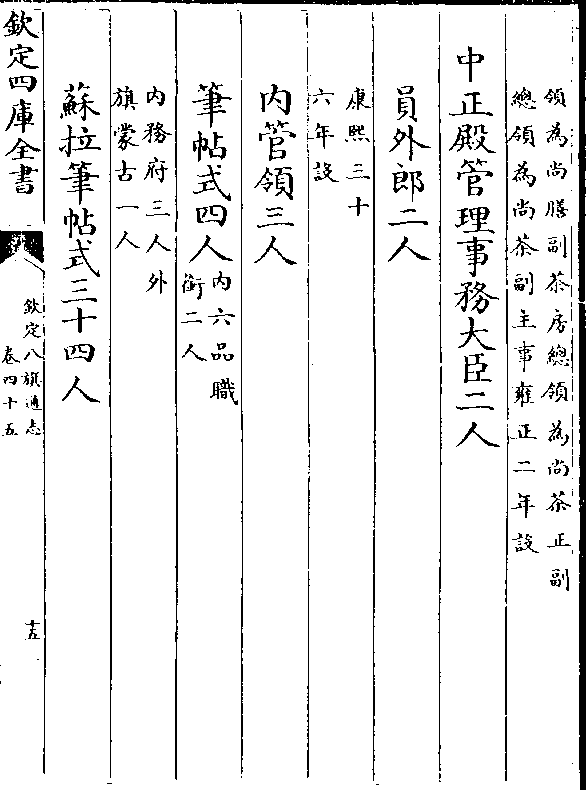 領為尚膳副茶房總領為尚茶正副
總領為尚茶副主事雍正二年設
中正殿管理事務大臣二人
員外郎二人
康熙三十
六年設
内管領三人
筆帖式四人内六品職
銜二人
内務府三人外
旗蒙古一人
蘇拉筆帖式三十四人
欽定四庫全書
欽定八旗通志
卷四十五
十五